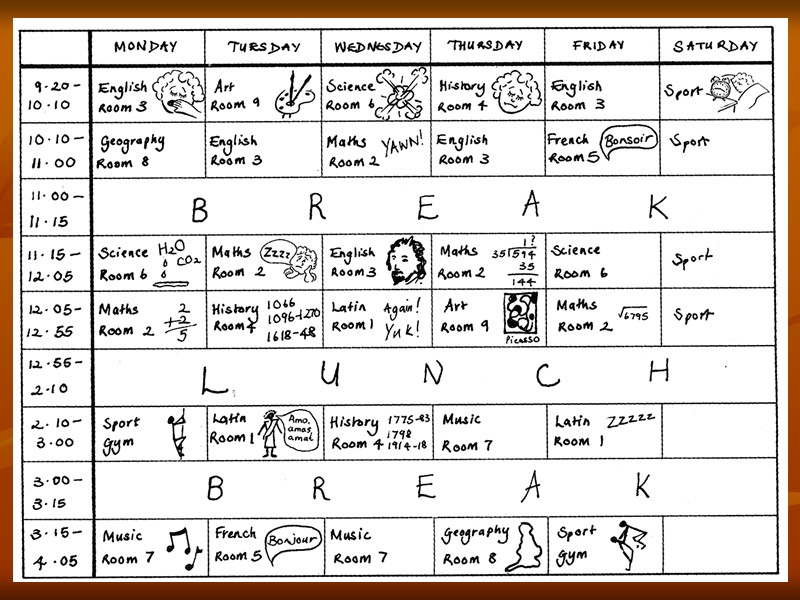 MONDAY TUESDAY WEDNESDAY THURSDAY FRIDAY SATURDAY
9.20- English Art Science History English Sport
10.10 Room 3 Room 9 Room 6 Room 4 Room 3
10.10- Geography English Maths YAWN! English French Bonsoir Sport
11.00 Room 8 Room 3 Room 2 Room 3 Room 5
11.00-
11.15
B R E A K
11.15- Science H2O Maths Zzzz English Maths 1? Science Sport
CO2 35 594
12.05 Room 6 Room 2 Room 3 Room 2 35 Room 6
144
12.05- Maths 2 History 1066 Latin Again! Art Maths √6795 Sport
+2 1096-1270
12.55 Room 2 5 Room 4 1618-48 Room 1 Yuk! Room 9 Picasso Room 2
12.55-
2.10
L U N C H
2.10- Sport Latin Amo, History 1775-83 Music Latin ZZZZZ
amas, 1798
3.00 Gym Room 1 amat Room 4 1914-18 Room 7 Room 1
3.00-
3.15
B R E A K
3.15- Music French Bonjour Music Geography Sport
4.05 Room 7 Room 5 Room 7 Room 8 Gym